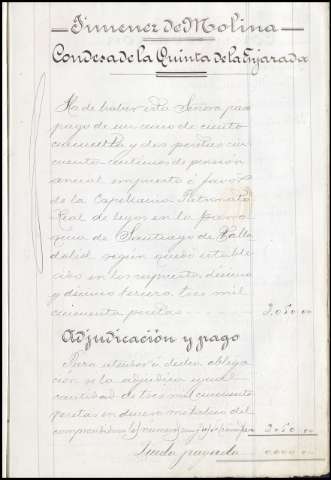 Jimenez de Molina
Condesa de la Quinta de la Enjarada
Ha de haber esta Señora para
pago de un censo de ciento
cincuenta y dos pesetas cin
cuenta centimos de pensión
anual impuesto á favor
de la Capellania Patronato
Real de legos en la parro
quia de Santiago de Valla
dolid según quedó estable
cido en los supuestos décimo
y décimo tercero, tres mil
cincuenta pesetas 3.050 00
Adjudicación y pago
Para atender á dicha obliga
ción se la adjudica igual
cantidad de tres mil cincuenta
pesetas en dinero metálico del
comprendido en el número 3.050 00
Queda pagada 0.000 00